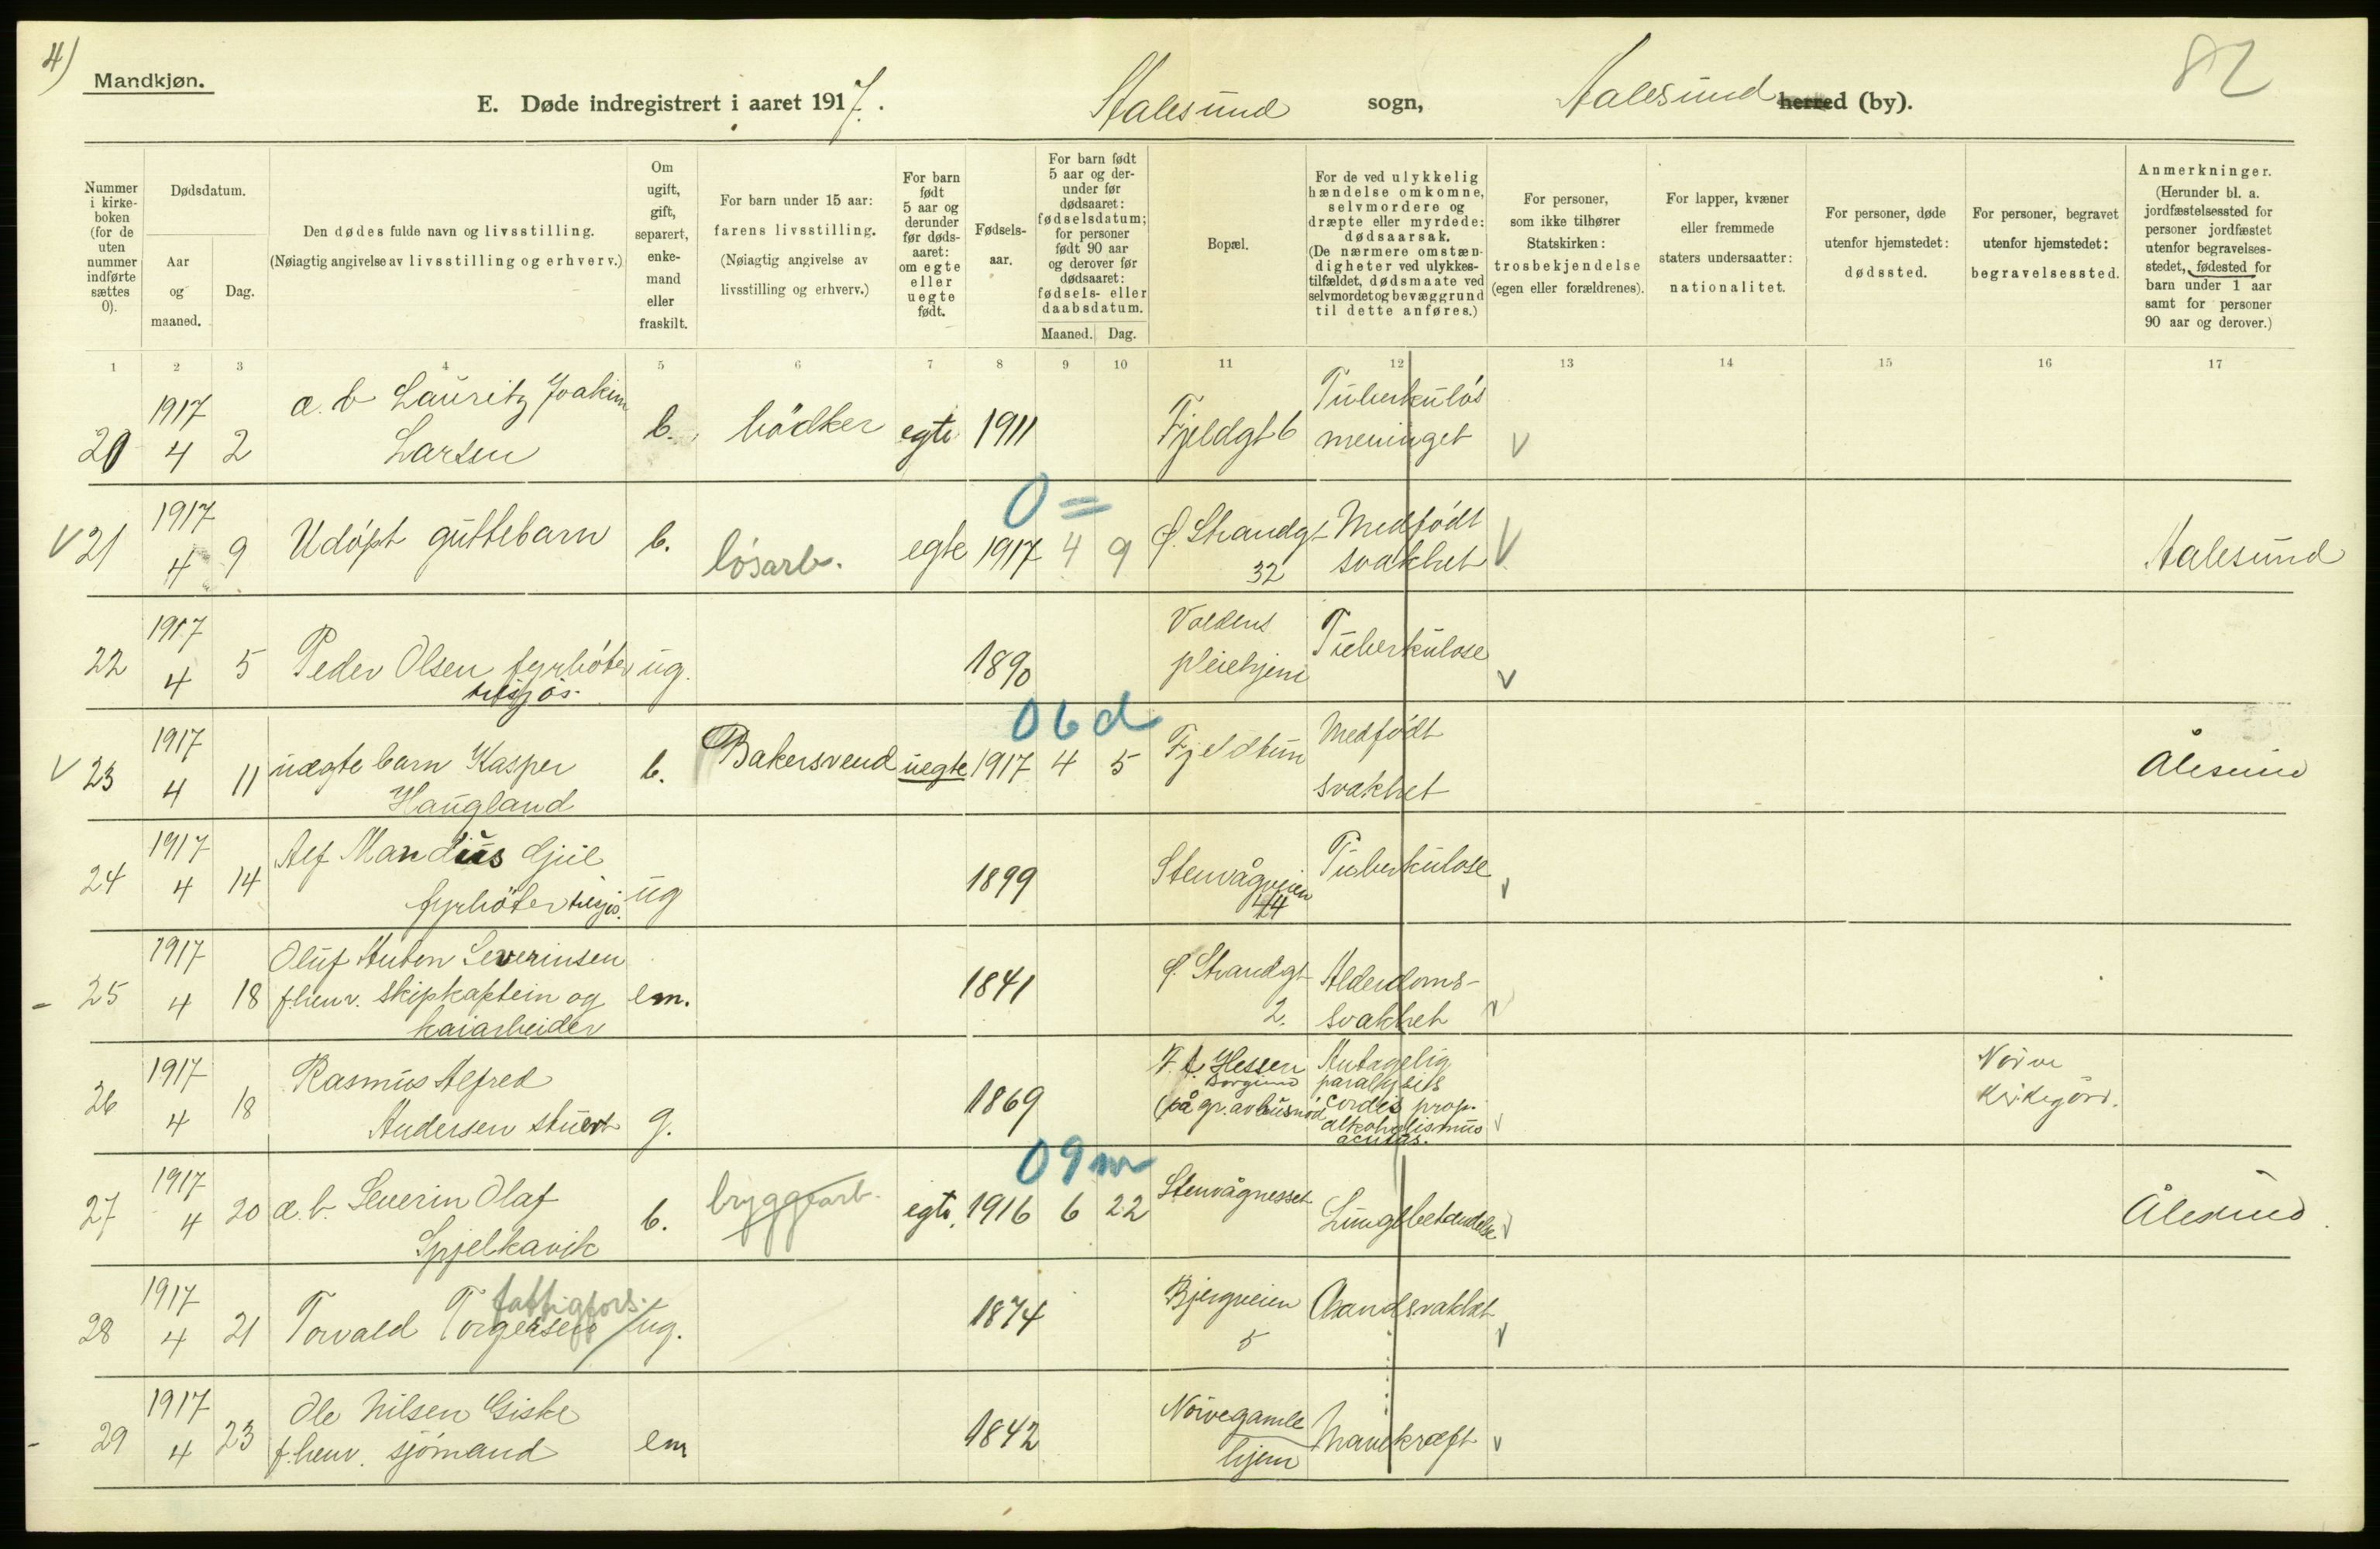 4)
Mandkjøn.
E. Døde indregistrert i aaret 1917.
Aalesund sogn,
Aalesund herred (by).
82
Nummer i kirke-boken (for de uten nummer indførte sættes 0).
Dødsdatum.
Aar og maaned.
Dag.
Den dødes fulde navn og livsstilling.
(Nøiagtig angivelse av livsstilling og erhverv.)
Om ugift, gift, separert, enke-mand eller fraskilt.
For barn under 15 aar:
farens livsstilling.
(Nøiagtig angivelse av
livsstilling og erhverv.)
For barn født 5 aar og derunder før døds-aaret: om egte eller uegte født.
Fødsels-aar.
For barn født 5 aar og der-under før dødsaaret: fødselsdatum; for personer født 90 aar og derover før dødsaaret: fødsels- eller daabsdatum.
Maaned. Dag.
Bopæl.
For de ved ulykkelig hændelse omkomne, selvmordere og dræpte eller myrdede: dødsaarsak.
(De nærmere omstæn-digheter ved ulykkes-tilfældet, dødsmaate ved selvmordet og bevæggrund til dette anføres.)
For personer, som ikke tilhører Statskirken: trosbekjendelse (egen eller forældrenes).
For lapper, kvæner eller fremmede staters undersaatter: nationalitet.
For personer, døde utenfor hjemstedet: dødssted.
For personer, begravet utenfor hjemstedet: begravelsessted.
Anmerkninger.
(Herunder bl. a. jordfæstelsessted for personer jordfæstet utenfor begravelses-stedet, fødested for barn under 1 aar samt for personer 90 aar og derover.)
1 2 3 4 5 6 7 8 9 10 11 12 13 14 15 16 17
20 1917 4 2 æ. b Lauritz Joakim
Larsen b. bødker egte 1911 Fjeldgt 6 Tuberkuløs
meninget V
0 =
V 21 1917 4 9 Udøpt guttebarn b. løsarb. egte 1917 4 9 Ø. Strandgt
32 Medfødt
svakhet V Aalesund
22 1917 4 5 Peder Olsen fyrbøter
tilsjøs. ug. 1890 Voldens
pleiehjem Tuberkulose V
0 6 d
V 23 1917 4 11 uægte barn Kasper
Haugland b. Bakersvend uegte 1917 4 5 Fjeldtun Medfødt
svakhet Ålesund
24 1917 4 14 Alf Mandius Gjul
fyrbøter tilsjø. ug 1899 Stenvågveien
44 Tuberkulose V
- 25 1917 4 18 Oluf Anton Severinsen
f.henv. skipkaptein og
kaiarbeider em. 1841 Ø. Strandgt
2. Alderdoms-
svakhet V
26 1917 4 18 Rasmus Alfred
Andersen stuert g. 1869 Hessen
Borgund
(på gr. av husnød Antagelig
paralysis
cordis prop.
alkoholismus
acutas. V Nørve
kirkegård.
0 9 m
27 1917 4 20 æ. b. Severin Olaf
Spjelkavik b. bryggearb. egte. 1916 6 22 Stenvågnesset Lungebetændelse V Ålesund.
28 1917 4 21 Torvald Torgersen fattigfors. / ug. 1874 Bjergveien
5 Aandsvakhet V
- 29 1917 4 23 Ole Nilsen Giske
f.henv. sjømand em 1842 Nørve gamle
hjem Mavekræft V